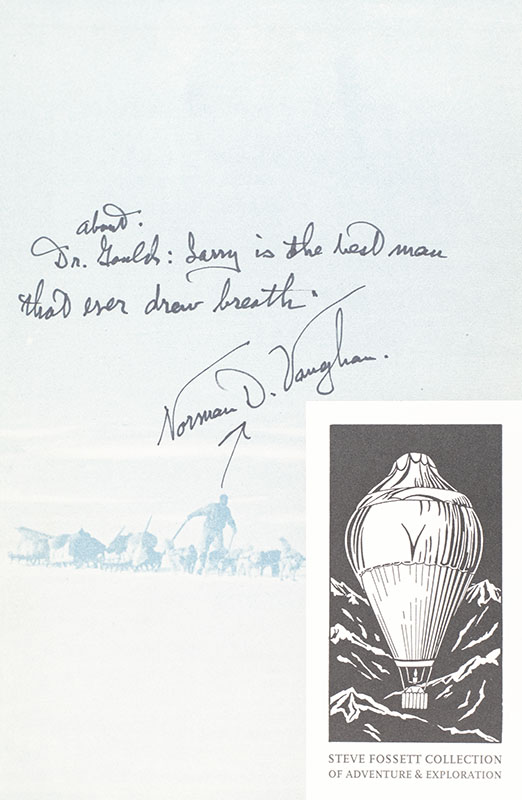 about.
Dr. Gould: Larry is the best man
that ever drew breath.
Norman D. Vaughan.
STEVE FOSSETT COLLECTION
OF ADVENTURE & EXPLORATION